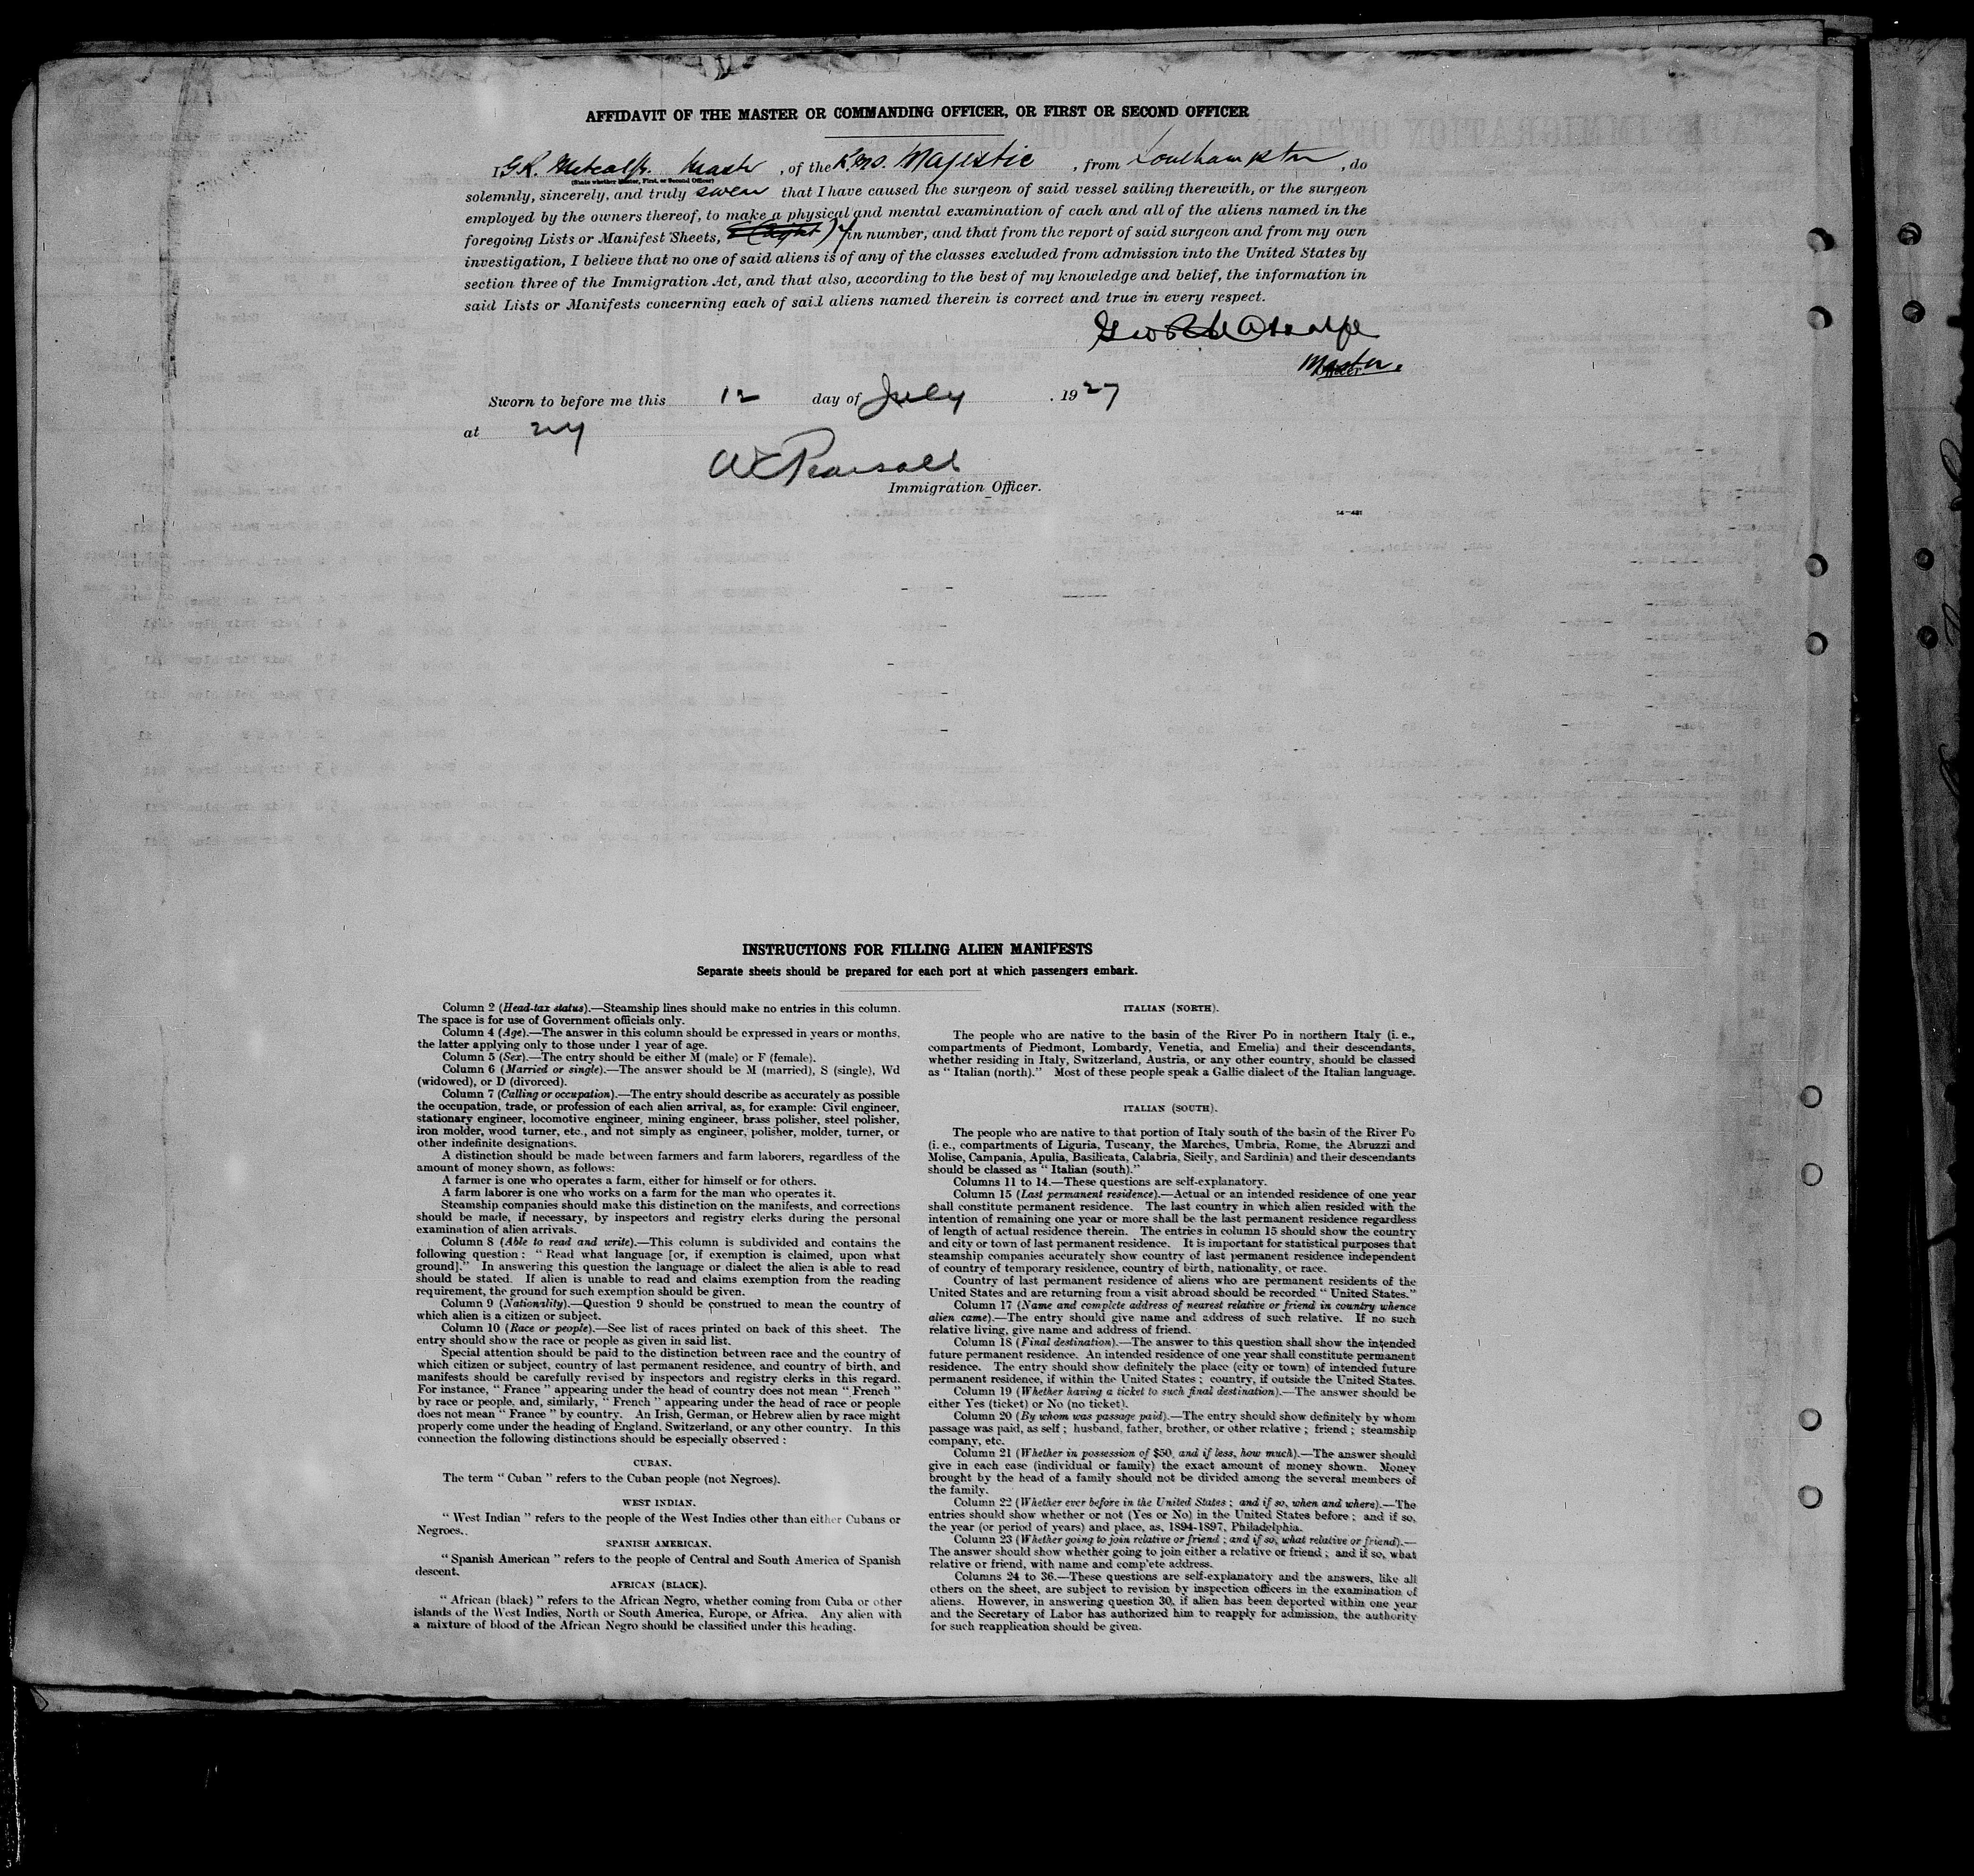 AFFIDAVIT OF THE MASTER OR COMMANDING OFFICER, OR FIRST OR SECOND OFFICER
I, G.R. Metcalfe. Master, of the R.M.S. Majestic, from Southampton, do
(State whether Master, First, or Second Officer)
solemnly, sincerely, and truly swear that I have caused the surgeon of said vessel sailing therewith, or the surgeon
employed by the owners thereof, to make a physical and mental examination of each and all of the aliens named in the
foregoing Lists or Manifest Sheets, in number, and that from the report of said surgeon and from my own
investigation, I believe that no one of said aliens is of any of the classes excluded from admission into the United States by
section three of the Immigration Act, and that also, according to the best of my knowledge and belief, the information in
said Lists or Manifests concerning each of said aliens named therein is correct and true in every respect.
Geo R Metcalfe
Master.
Sworn to before me this 12 day of July, 1927
at NY
Pearsall
Immigration Officer.
14-431
INSTRUCTIONS FOR FILLING ALIEN MANIFESTS
Separate sheets should be prepared for each port at which passengers embark.
Column 2 (Head-tax status).—Steamship lines should make no entries in this column.
The space is for use of Government officials only.
Column 4 (Age).—The answer in this column should be expressed in years or months,
the latter applying only to those under 1 year of age.
Column 5 (Sex).—The entry should be either M (male) or F (female).
Column 6 (Married or single).—The answer should be M (married), S (single), Wd
(widowed), or D (divorced).
Column 7 (Calling or occupation).—The entry should describe as accurately as possible
the occupation, trade, or profession of each alien arrival, as, for example: Civil engineer,
stationary engineer, locomotive engineer, mining engineer, brass polisher, steel polisher,
iron molder, wood turner, etc., and not simply as engineer, polisher, molder, turner, or
other indefinite designations.
A distinction should be made between farmers and farm laborers, regardless of the
amount of money shown, as follows:
A farmer is one who operates a farm, either for himself or for others.
A farm laborer is one who works on a farm for the man who operates it.
Steamship companies should make this distinction on the manifests, and corrections
should be made, if necessary, by inspectors and registry clerks during the personal
examination of alien arrivals.
Column 8 (Able to read and write).—This column is subdivided and contains the
following question: "Read what language [or, if exemption is claimed, upon what
ground]." In answering this question the language or dialect the alien is able to read
should be stated. If alien is unable to read and claims exemption from the reading
requirement, the ground for such exemption should be given.
Column 9 (Nationality).—Question 9 should be construed to mean the country of
which alien is a citizen or subject.
Column 10 (Race or people).—See list of races printed on back of this sheet. The
entry should show the race or people as given in said list.
Special attention should be paid to the distinction between race and the country of
which citizen or subject, country of last permanent residence, and country of birth, and
manifests should be carefully revised by inspectors and registry clerks in this regard.
For instance, "France" appearing under the head of country does not mean "French"
by race or people, and, similarly, "French" appearing under the head of race or people
does not mean "France" by country. An Irish, German, or Hebrew alien by race might
properly come under the heading of England, Switzerland, or any other country. In this
connection the following distinctions should be especially observed:
CUBAN.
The term "Cuban" refers to the Cuban people (not Negroes).
WEST INDIAN.
"West Indian" refers to the people of the West Indies other than either Cubans or
Negroes.
SPANISH AMERICAN.
"Spanish American" refers to the people of Central and South America of Spanish
descent.
AFRICAN (BLACK).
"African (black)" refers to the African Negro, whether coming from Cuba or other
islands of the West Indies, North or South America, Europe, or Africa. Any alien with
a mixture of blood of the African Negro should be classified under this heading.
ITALIAN (NORTH).
The people who are native to the basin of the River Po in northern Italy (i. e.,
compartments of Piedmont, Lombardy, Venetia, and Emelia) and their descendants,
whether residing in Italy, Switzerland, Austria, or any other country, should be classed
as "Italian (north)." Most of these people speak a Gallic dialect of the Italian language.
ITALIAN (SOUTH).
The people who are native to that portion of Italy south of the basin of the River Po
(i. e., compartments of Liguria, Tuscany, the Marches, Umbria, Rome, the Abruzzi and
Molise, Campania, Apulia, Basilicata, Calabria, Sicily, and Sardinia) and their descendants
should be classed as "Italian (south)."
Columns 11 to 14.—These questions are self-explanatory.
Column 15 (Last permanent residence).—Actual or an intended residence of one year
shall constitute permanent residence. The last country in which alien resided with the
intention of remaining one year or more shall be the last permanent residence regardless
of length of actual residence therein. The entries in column 15 should show the country
and city or town of last permanent residence. It is important for statistical purposes that
steamship companies accurately show country of last permanent residence independent
of country of temporary residence, country of birth, nationality, or race.
Country of last permanent residence of aliens who are permanent residents of the
United States and are returning from a visit abroad should be recorded "United States."
Column 17 (Name and complete address of nearest relative or friend in country whence
alien came).—The entry should give name and address of such relative. If no such
relative living, give name and address of friend.
Column 18 (Final destination).—The answer to this question shall show the intended
future permanent residence. An intended residence of one year shall constitute permanent
residence. The entry should show definitely the place (city or town) of intended future
permanent residence, if within the United States; country, if outside the United States.
Column 19 (Whether having a ticket to such final destination).—The answer should be
either Yes (ticket) or No (no ticket).
Column 20 (By whom was passage paid).—The entry should show definitely by whom
passage was paid, as self; husband, father, brother, or other relative; friend; steamship
company, etc.
Column 21 (Whether in possession of $50, and if less, how much).—The answer should
give in each case (individual or family) the exact amount of money shown. Money
brought by the head of a family should not be divided among the several members of
the family.
Column 22 (Whether ever before in the United States; and if so, when and where).—The
entries should show whether or not (Yes or No) in the United States before; and if so,
the year (or period of years) and place, as, 1894-1897, Philadelphia.
Column 23 (Whether going to join relative or friend; and if so, what relative or friend).—
The answer should show whether going to join either a relative or friend; and if so, what
relative or friend, with name and complete address.
Columns 24 to 36.—These questions are self-explanatory and the answers, like all
others on the sheet, are subject to revision by inspection officers in the examination of
aliens. However, in answering question 30, if alien has been deported within one year
and the Secretary of Labor has authorized him to reapply for admission, the authority
for such reapplication should be given.